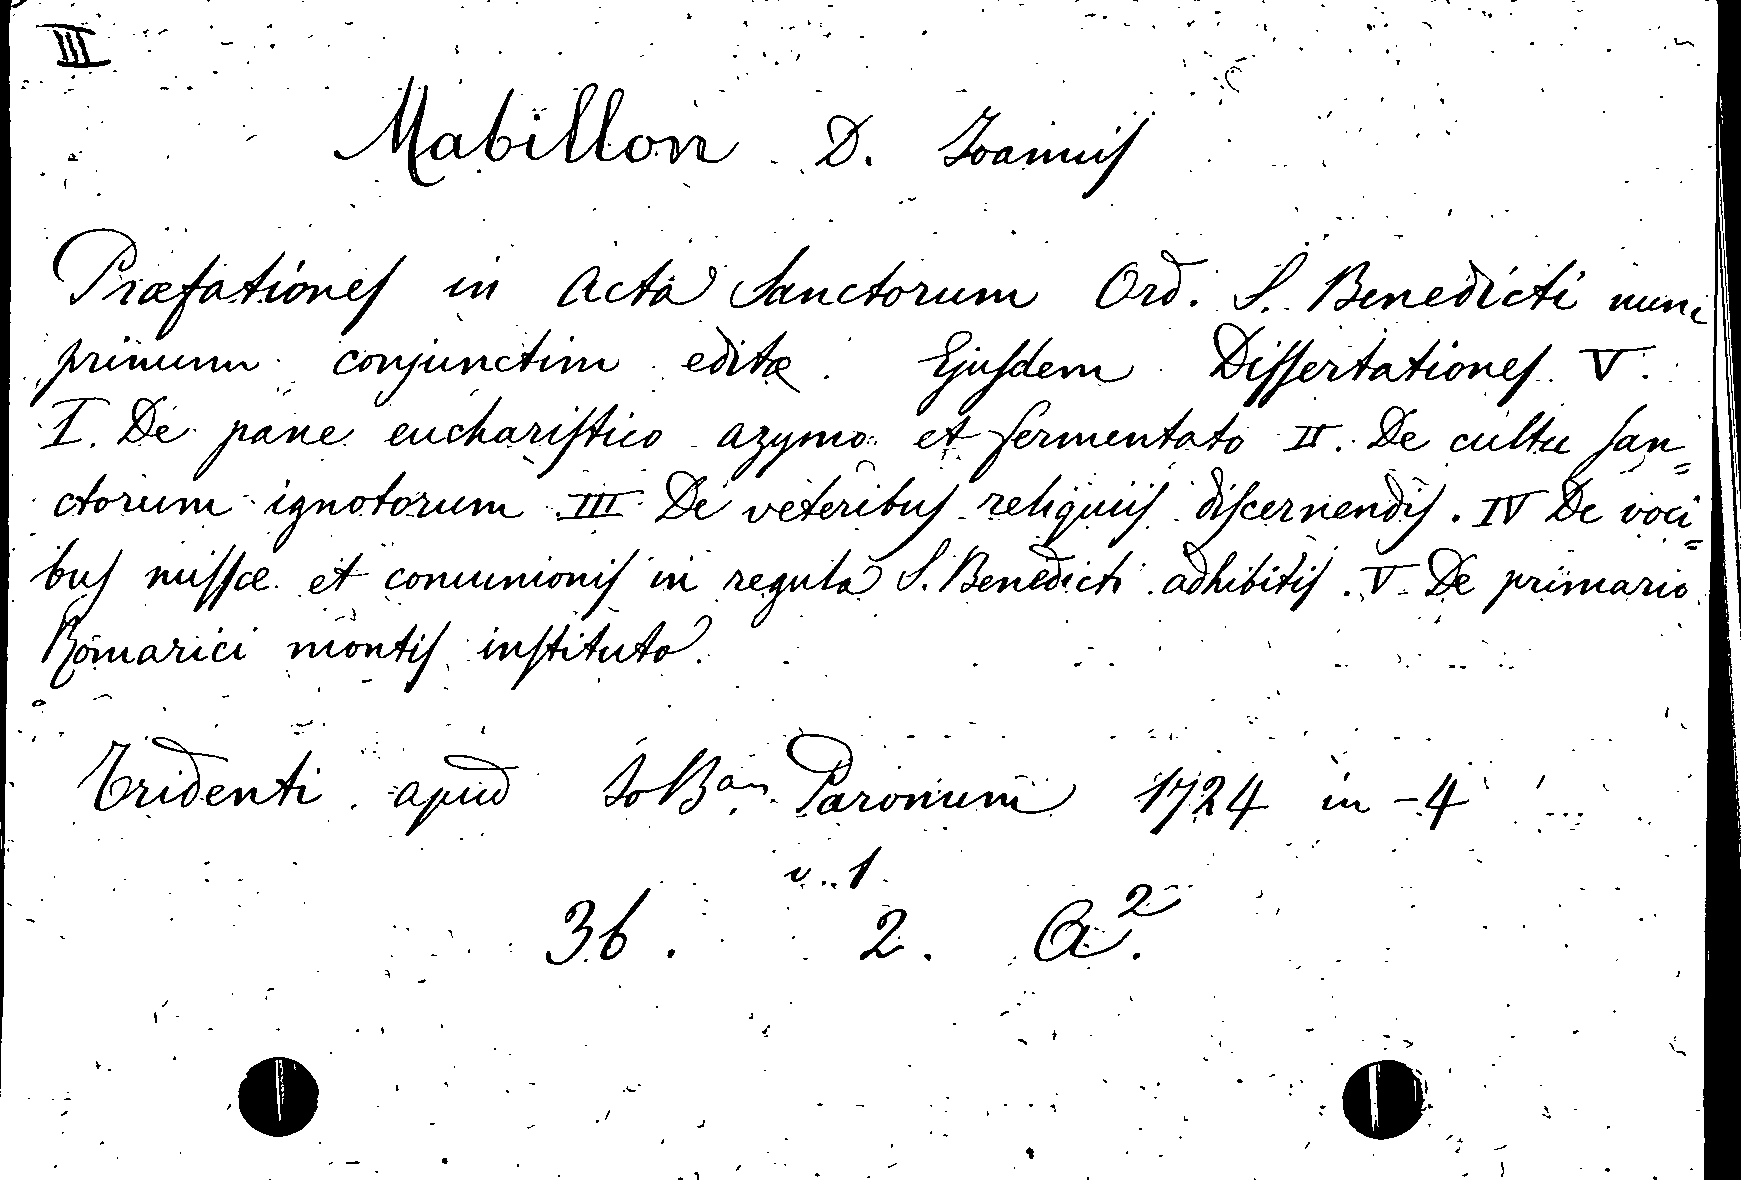 III
Mabillon D. Joannis
Præfationes in Acta Sanctorum Ord. S. Benedicti nunc
primum conjunctim editæ. Ejusdem Dissertationes V.
I. De pane eucharistico azymo et fermentato II. De cultu san=
ctorum ignotorum III De veteribus reliquiis discernendis. IV De voci=
bus missæ et comunionis in regula S. Benedicti adhibitis. V. De primario
Romarici montis instituto.
Tridenti apud JoBam. Paronum 1724 in-4
v. 1
36. 2. A².